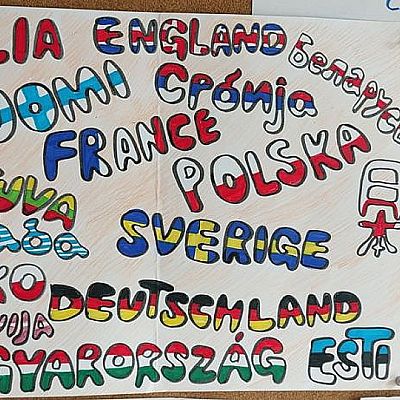 LIA ENGLAND Беларусь
OMI Србија
FRANCE
POLSKA
UVA
άδα SVERIGE
KO DEUTSCHLAND
VIJA
GYARORSZÁG ESTI